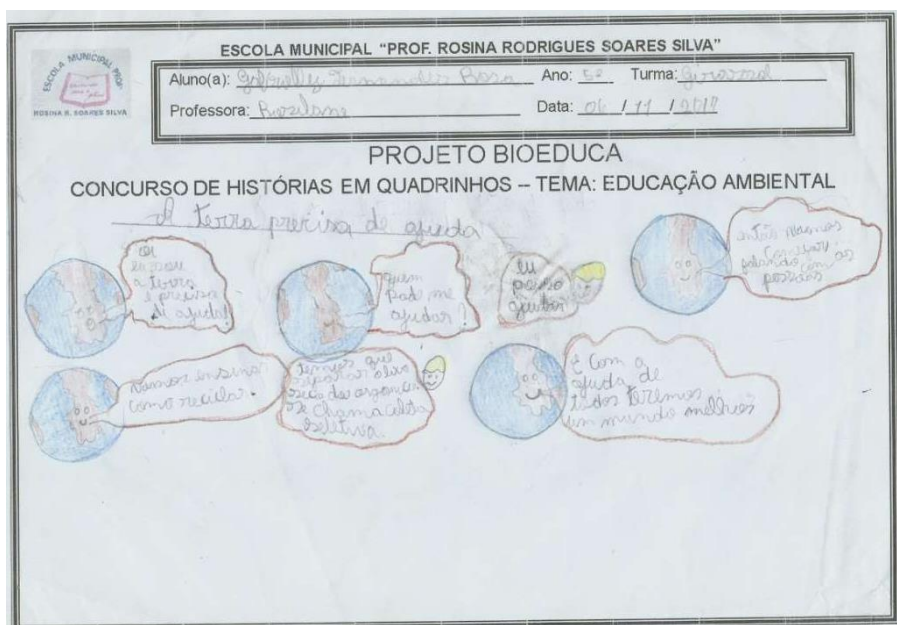 ESCOLA MUNICIPAL "PROF. ROSINA RODRIGUES SOARES SILVA"
ESCOLA MUNICIPAL PROF.
ROSINA R. SOARES SILVA
Aluno(a): Gabrielly Fernandes Rosa Ano: 5º Turma: Girassol
Professora: Rozilane Data: 06 / 11 / 2018
PROJETO BIOEDUCA
CONCURSO DE HISTÓRIAS EM QUADRINHOS – TEMA: EDUCAÇÃO AMBIENTAL
A terra precisa de ajuda
Oi
eu sou
a terra
e preciso
de ajuda!
quem
pode me
ajudar?
eu
posso
ajudar
então vamos
começar
falando com as
pessoas
vamos ensina
como recicla.
temos que
separar o lixo
seco dos organico
se chama coleta
seletiva.
E com a
ajuda de
todos teremos
um mundo melhor